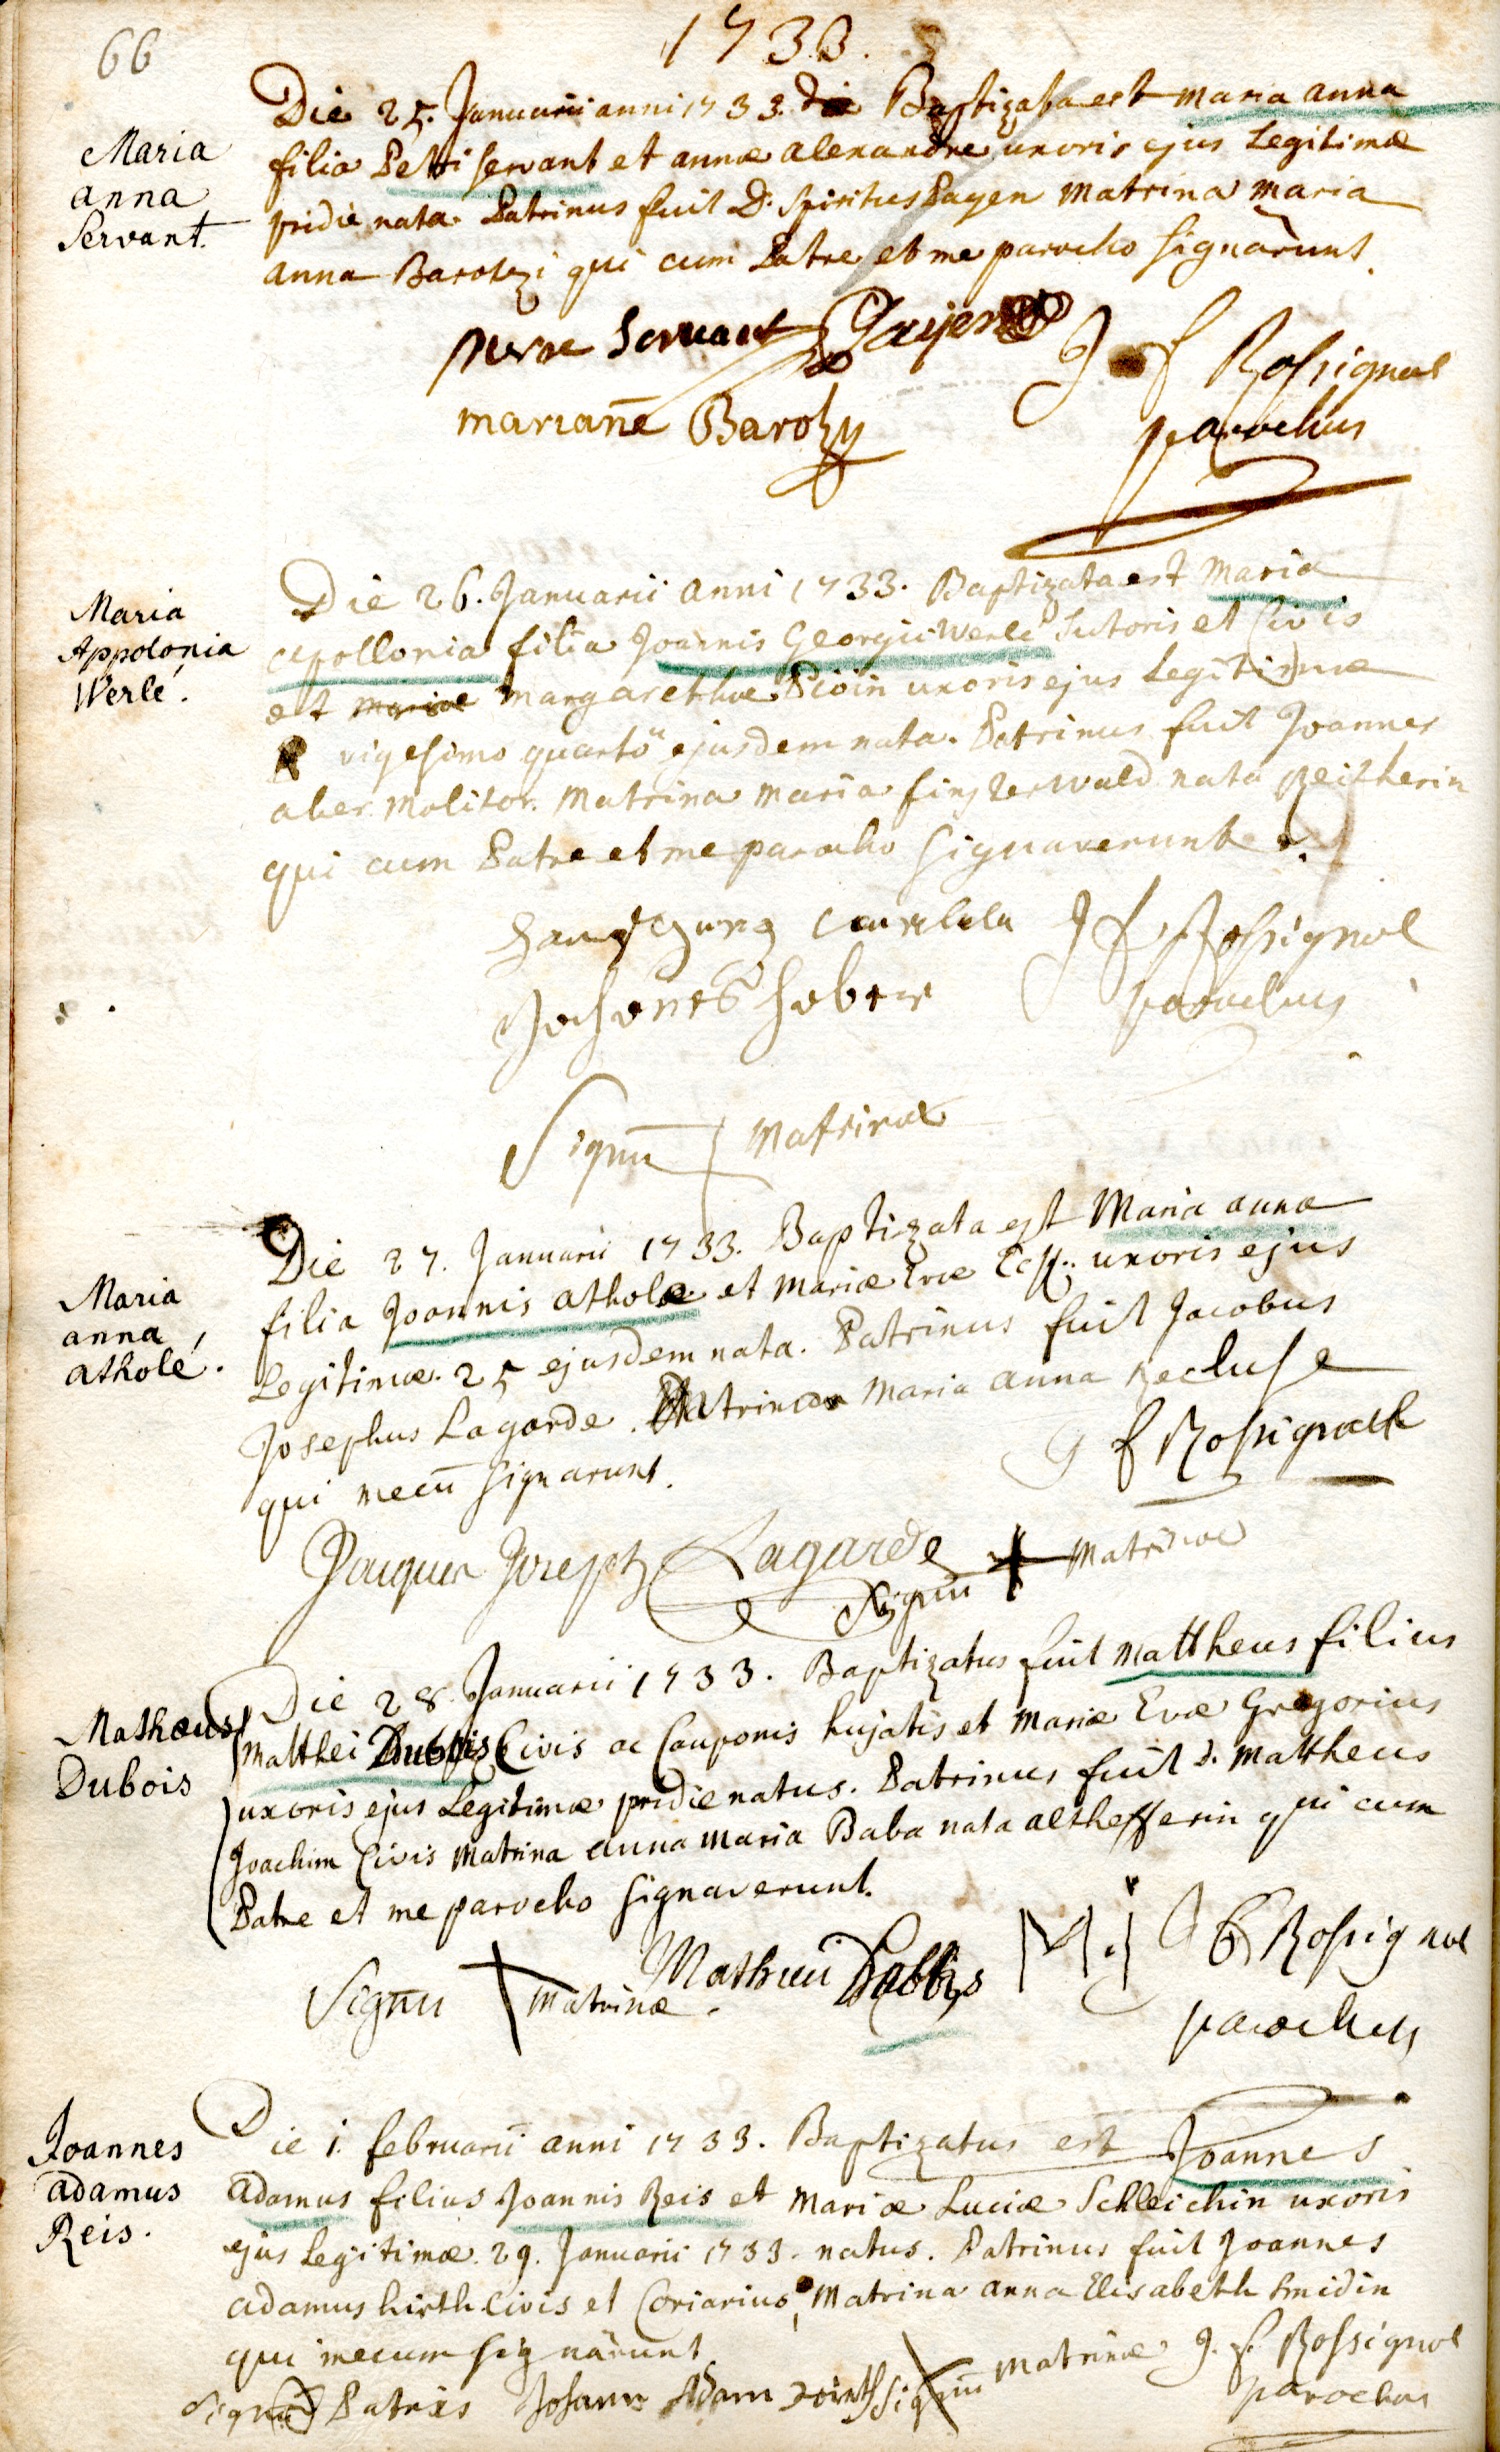 66
1733.
Maria
anna
Servant.
Die 25. Januarii anni 1733. Baptizata est maria anna
filia Petri servant et annæ alexandre uxoris ejus Legitimæ
pridie nata. Patrinus fuit D. Spiritus Payen Matrina Maria
anna Barolzi qui cum Patre et me parocho signarunt.
pierre Servant Payen J f Rossignol
mariane Barolzy parochus
Maria
Appolonia
Werlé.
Die 26. Januarii anni 1733. Baptizata est Maria
apollonia filia Joannis Georgii Werlé Sutoris et Civis
et mariæ margarethæ uxoris ejus Legitimæ
vigesimo quarto ejusdem nata. Patrinus fuit Joannes
aber Molitor. Matrina Maria finsterwald nata Reitherin
qui cum Patre et me parocho signaverunt.
J f Rossignol
Johanes haber parochus
Signū matrinæ
Maria
anna
atholé.
Die 27. Januarii 1733. Baptizata est Maria anna
filia Joannis atholæ et Mariæ Evæ uxoris ejus
Legitimæ. 25 ejusdem nata. Patrinus fuit Jacobus
Josephus Lagarde. Matrina Maria anna Recluse
qui mecū signarunt. J f Rossignol
Jacques Joseph Lagarde Signū + Matrinæ
Mathæus
Dubois
Die 28. Januarii 1733. Baptizatus fuit Mattheus filius
Matthei Dubois Civis ac Cauponis hujatis et Mariæ Evæ Gregorius
uxoris ejus Legitimæ pridie natus. Patrinus fuit d. Mattheus
Joachim Civis Matrina anna maria Baba nata althefferin qui cum
Patre et me parocho signaverunt.
Signū + Matrinæ. Mathieu Dubois M.j J f Rossignol
parochus
Joannes
adamus
Reis.
Die 1. februarii anni 1733. Baptizatus est Joannes
adamus filius Joannis Reis et Mariæ Luciæ Schleichin uxoris
ejus Legitimæ. 29. Januarii 1733. natus. Patrinus fuit Joannes
adamus hirth Civis et Coriarius, Matrina anna Elisabeth smidin
qui mecum signarunt
Signū Patris Johann Adam hirth Signū Matrinæ J. f. Rossignol
parochus